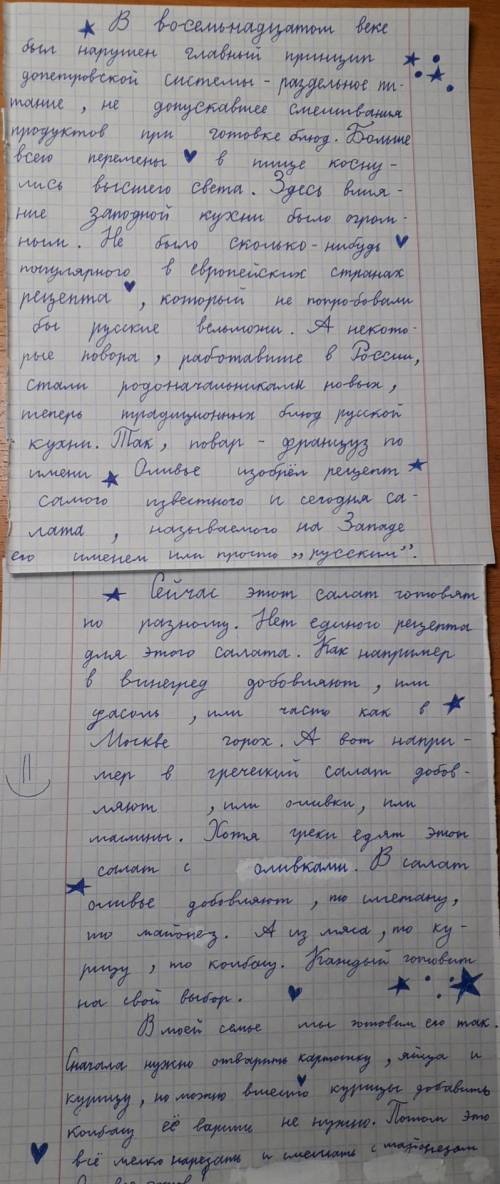 В восемьнадцатом веке
был нарушен главный принцип
допетровской системы - раздельное пи-
тание, не допускавшее смешивания
продуктов при готовке блюд. Больше
всего перемены в пище косну-
лись высшего света. Здесь влия-
ние западной кухни было огром-
ным. Не было сколько-нибудь
популярного в европейских странах
рецепта, который не попробовали
бы русские вельможи. А некото-
рые повора, работавшие в России,
стали родоначальниками новых,
теперь традиционных блюд русской
кухни. Так, повар - француз по
имени Оливье изобрёл рецепт
самого известного и сегодня са-
лата, называемого на Западе
его именем или просто „русским".
Сейчас этот салат готовят
по разному. Нет единого рецепта
для этого салата. Как например
в винегред добовляют, или
фасоль, или часто как в
Москве горох. А вот напри-
мер в греческий салат добов-
ляют, или оливки, или
маслины. Хотя греки едят этот
салат с оливками. В салат
оливье добовляют, то сметану,
то майонез. А из мяса, то ку-
рицу, то колбасу. Каждый готовит
на свой выбор.
В моей семье мы готовим его так.
Сначала нужно отварить картошку, яйца и
курицу, но можно вместо курицы добавить
колбасу её варить не нужно. Потом это
всё мелко нарезать и смешать с майонезом